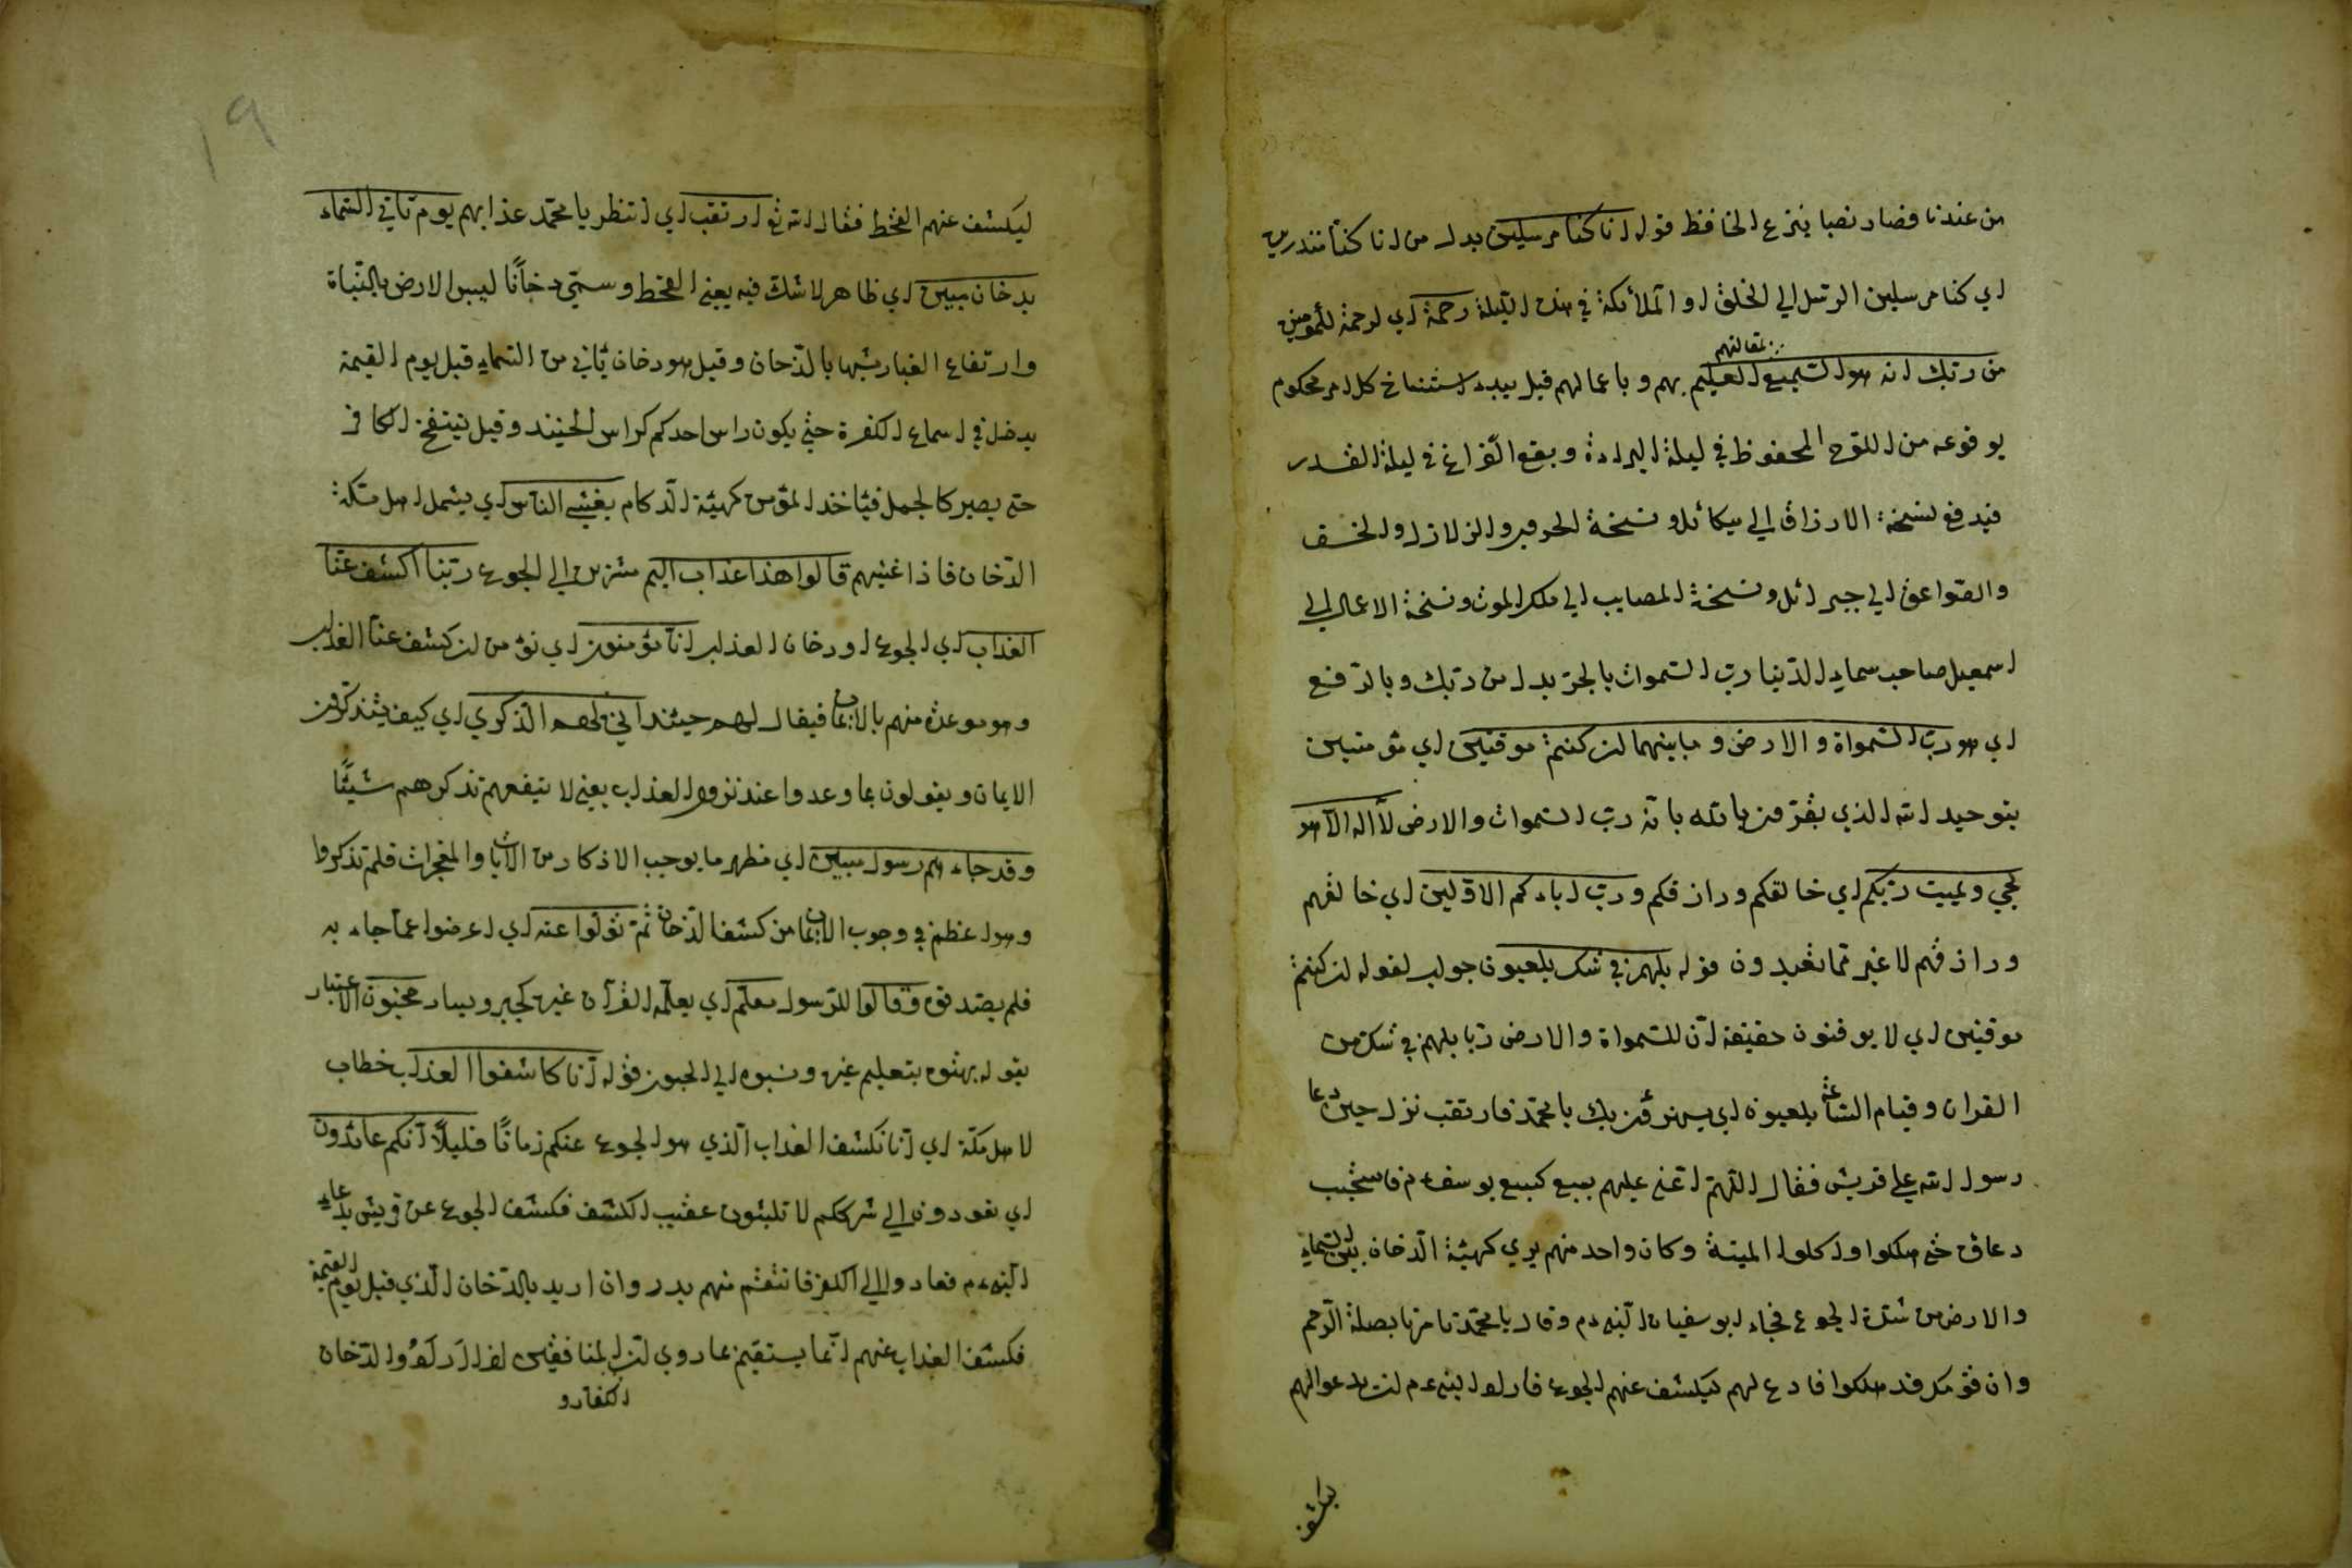 من عندنا فصار نصبا بنزع الخافظ قوله انا كنا مرسلين بدل من انا كنا منذرين
اي كنا مرسلين الرسل الي الخلق او الملأئكة في هذه الليلة رحمة اي لرحمة للمؤمنين
من ربك انه هو السميع لمقالتهم العليم بهم و باعمالهم قيل يبدء استنساخ كل امر محكوم
بوقوعه من اللوح المحفوظ في ليلة البراءة ويقع الفراغ في ليلة القدر
فيدفع نسخة الارزاق الي ميكائل و نسخة الحروب والزلازل والخسف
والصواعق الي جبرائل ونسخة المصايب الي ملك الموت و نسخة الاعمال الي
اسمعيل صاحب سماء الدنيا رب السموات بالجر بدل من ربك وبالرفع
اي هو رب السمواة والارض و مابينهما ان كنتم موقنين اي مؤمنين
بتوحيد الله الذي يقرون بالله بانه رب السموات والارض لا اله الا هو
يحي ويميت ربكم اي خالقكم ورازقكم ورب اباءكم الاولين اي خالقهم
ورازقهم لا غير مما تعبدون قوله بل هم في شك يلعبون جواب لقوله ان كنتم
موقنين اي لا يوقنون حقيقة ان للسمواة والارض ربا بل هم في شك من
القران وقيام الساعة يلعبون اي يستهزؤن بك يا محمد فارتقب نزل حين دعا
رسول الله علي قريش فقال اللهم اعني عليهم بسبع كسبع يوسف ع م فاستجيب
دعاؤه حتي هلكوا واكلوا الميتة وكان واحد منهم يري كهيئة الدخان بين السماء
والارض من شدة الجوع فجاء ابو سفيان النبي ع م وقال يا محمد تأمرنا بصلة الرحم
وان قومك قد هلكوا فادع لهم ليكشف عنهم الجوع فاراد النبي ع م ان يدعو الهم
ليكشف
١٩
ليكشف عنهم القحط فقال الله تع ارتقب اي انتظر يا محمد عذابهم يوم تاتي السماء
بدخان مبين اي ظاهر لا شك فيه يعني القحط وسمي دخانًا ليبس الارض بالنباة
وارتفاع الغبار شبها بالدخان وقيل هو دخان يأتي من السماء قبل يوم القيمة
يدخل في اسماع الكفرة حتي يكون راس احدكم كراس الحنيند وقيل ينتفخ الكافر
حتي يصير كالجمل فيأخذ المؤمن كهيئة الزكام يغشي الناس اي يشمل اهل مكة
الدخان فاذا غشيهم قالوا هذا عذاب اليم مشيرين الي الجوع ربنا اكشف عنا
العذاب اي الجوع او دخان العذاب انا مؤمنون اي نؤمن ان كشف عنا العذاب
وهو موعدة منهم بالايمان فيقال لهم حينئذ اني لهم الذكري اي كيف يتذكرون
الايمان و يقولون بما وعدوا عند نزول العذاب يعني لا ينفعهم تذكرهم شيئًا
وقد جاءهم رسول مبين اي مظهر ما يوجب الاذكار من الايات والمعجزات فلم تذكروا
وهو اعظم في وجوب الايمان من كشف الدخان ثم تولوا عنه اي اعرضوا عما جاء به
فلم يصدقوه وقالوا للرسول معلم اي يعلمه القرآن غيره كجبر ويسار مجنون الاعتبار
بقوله بهتوه بتعليم غيره ونسبوه الي الجنون قوله انا كاشفوا العذاب خطاب
لاهل مكة اي انا نكشف العذاب الذي هو الجوع عنكم زمانًا قليلاً انكم عائدون
اي تعودون الي شرككم لا تلبثون عقيب الكشف فكشف الجوع عن قريش بدعاء
النبي ع م فعادوا الي الكفر فانتقم منهم ببدر وان اريد بالدخان الذي قبل يوم القيمة
فكشف العذاب عنهم انما يستقيم عاروي ان المنافقين اذا رأوا الدخان
الكفار و